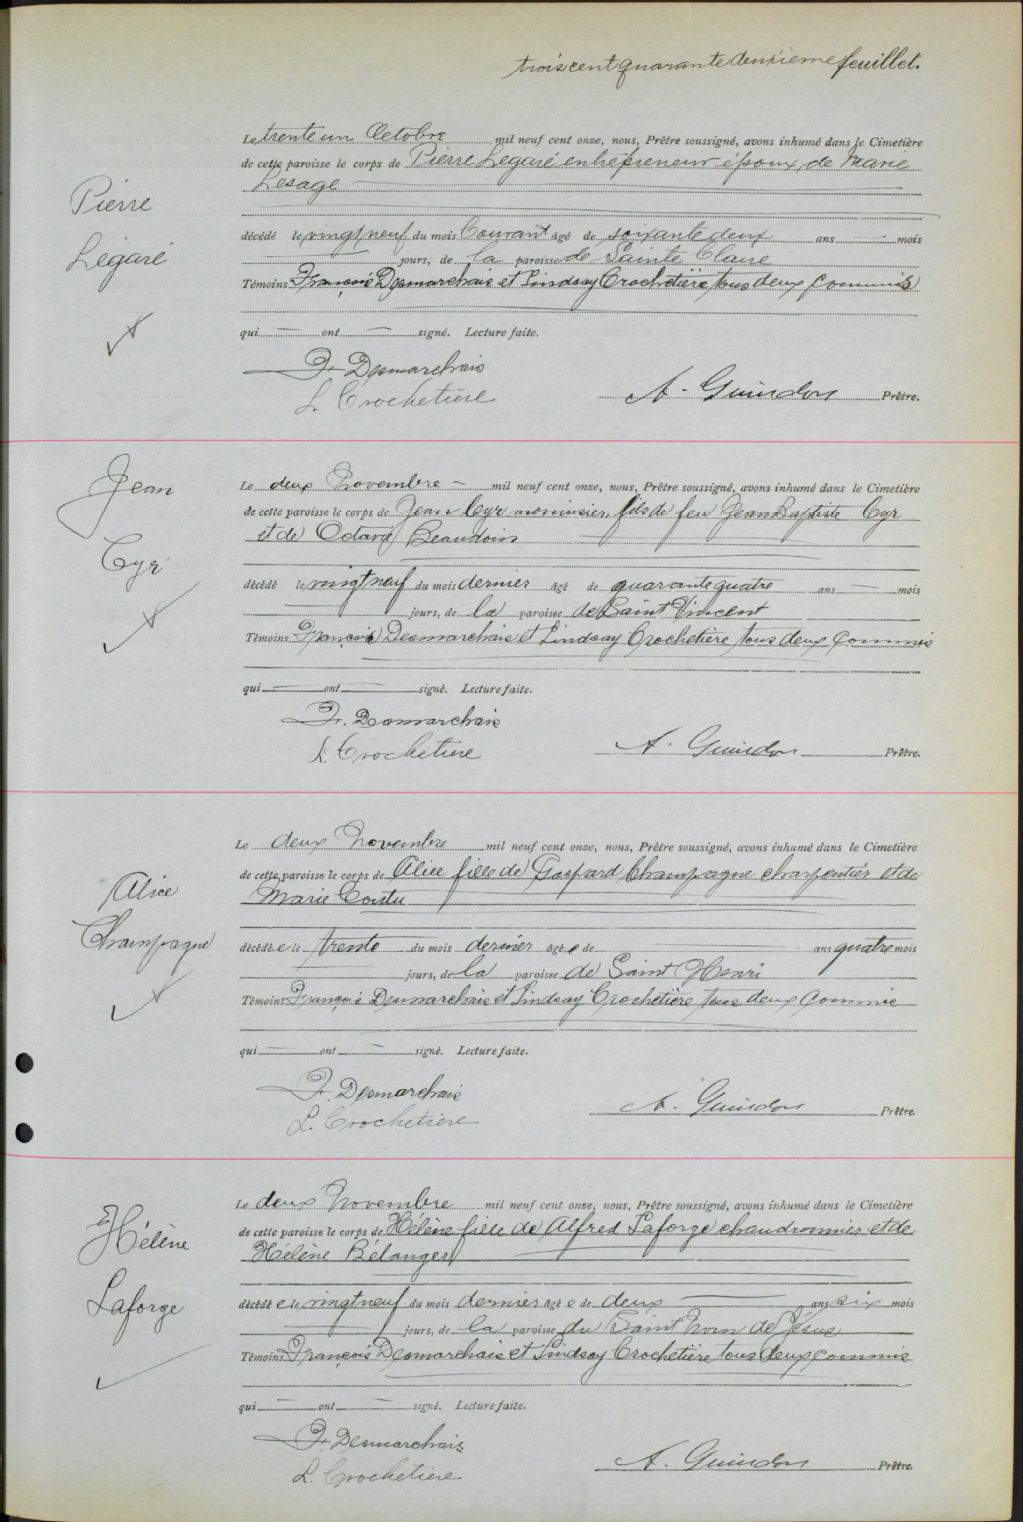 trois cent quarante deuxième feuillet.
Pierre
Légaré
Le trente un Octobre mil neuf cent onze, nous, Prêtre soussigné, avons inhumé dans le Cimetière
de cette paroisse le corps de Pierre Légaré entrepreneur époux de Marie
Lesage
décédé le vingt neuf du mois Courant âgé de soixante deux ans mois
jours, de la paroisse de Sainte Claire
Témoins François Desmarchais et Lindsay Crochetière tous deux commis
qui ont signé. Lecture faite.
F. Desmarchais
L. Crochetière
A. Guindon Prêtre.
Jean
Cyr
Le deux Novembre mil neuf cent onze, nous, Prêtre soussigné, avons inhumé dans le Cimetière
de cette paroisse le corps de Jean Cyr menuisier, fils de feu Jean Baptiste Cyr
et de Octavie Beaudoin
décédé le vingt neuf du mois dernier âgé de quarante quatre ans mois
jours, de la paroisse de Saint Vincent
Témoins François Desmarchais et Lindsay Crochetière tous deux commis
qui ont signé. Lecture faite.
F. Desmarchais
L. Crochetière
A. Guindon Prêtre.
Alice
Champagne
Le deux Novembre mil neuf cent onze, nous, Prêtre soussigné, avons inhumé dans le Cimetière
de cette paroisse le corps de Alice fille de Gaspard Champagne charpentier et de
Marie Coutu
décédé e le trente du mois dernier âgé e de ans quatre mois
jours, de la paroisse de Saint Henri
Témoins François Desmarchais et Lindsay Crochetière tous deux commis
qui ont signé. Lecture faite.
F. Desmarchais
L. Crochetière
A. Guindon Prêtre.
Hélène
Laforge
Le deux Novembre mil neuf cent onze, nous, Prêtre soussigné, avons inhumé dans le Cimetière
de cette paroisse le corps de Hélène fille de Alfred Laforge chaudronnier et de
Hélène Bélanger
décédé e le vingt neuf du mois dernier âgé e de deux ans six mois
jours, de la paroisse du Saint Nom de Jésus
Témoins François Desmarchais et Lindsay Crochetière tous deux commis
qui ont signé. Lecture faite.
F. Desmarchais
L. Crochetière
A. Guindon Prêtre.